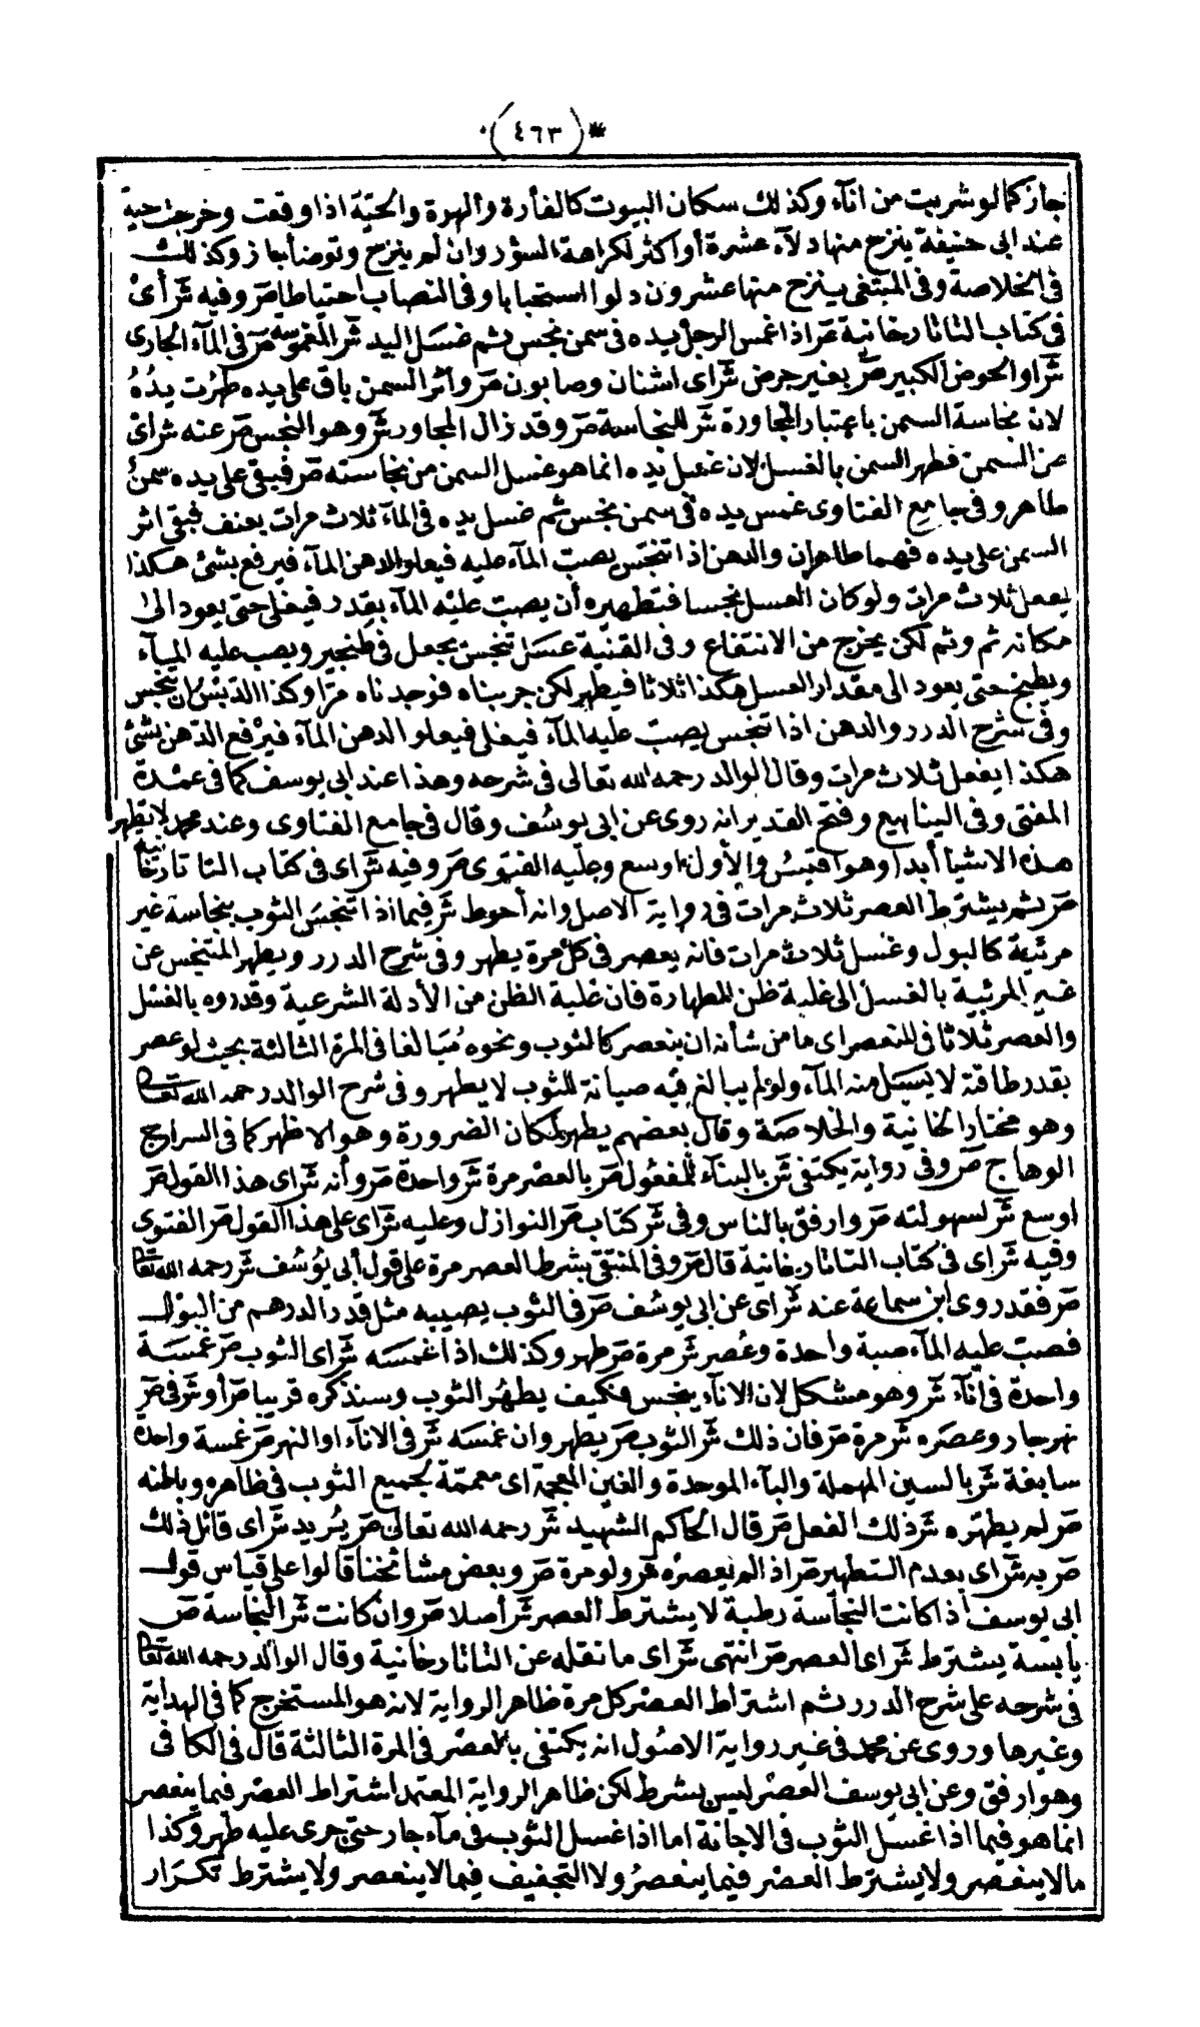 * (٤٦٣)
جاز كما لو شربت من انآء وكذلك سكان البيوت كالفأرة والهرة والحيّة اذا وقعت وخرجت حية
عند ابى حنيفة ينزح منها دلآء عشرة أو اكثر لكراهة السؤر وان لم ينزح وتوضأ جاز وكذلك
فى الخلاصة وفى المبتغى ينزح منها عشرون دلوا استحبابا وفى النصاب احتياطا صر وفيه شر أى
فى كتاب التاتارخانية صر اذا غمس الرجل يده فى سمن نجس ثم غسل اليد شر المغموسة صر فى المآء الجارى
شر او الحوض الكبير صر بغير حرض شر اى اشنان وصابون صر واثر السمن باق على يده طهرت يدُهُ
لان نجاسة السمن باعتبار المجاورة شر للنجاسة صر وقد زال المجاور شر وهو النجس صر عنه شر اى
عن السمن فطهر السمن بالغسل لان غسل يده انما هو غسل السمن من نجاسته صر فبقى على يده سمنٌ
طاهر وفى جامع الفتاوى غمس يده فى سمن نجس ثم غسل يده فى المآء ثلاث مرات بعنف فبقى اثر
السمن على يده فهما طاهران والدهن اذا تنجّس يصبّ المآء عليه فيعلو الدهن المآء فيرفع بشئ هكذا
يعمل ثلاث مرات ولو كان العسل نجسا فتطهيره أن يصبّ عليه المآء بقدر فيغلى حتى يعود الى
مكانه ثم وثم لكن يخرج من الانتفاع وفى القنية عسل تنجس يجعل فى طنجير ويصب عليه الميآء
ويطبخ حتى يعود الى مقدار العسل هكذا ثلاثا فيطهر لكن جربناه فوجدناه مرّا وكذا الدبس ان تنجس
وفى شرح الدرر والدهن اذا تنجس يصبّ عليه المآء فيغلى فيعلو الدهن المآء فيرفع الدّهن بشئ
هكذا يفعل ثلاث مرات وقال الوالد رحمه الله تعالى فى شرحه وهذا عند ابى يوسف كما فى عمدة
المفتى وفى الينابيع وفتح القدير انه روى عن ابى يوسُف وقال فى جامع الفتاوى وعند محمد لا يطهر
هذه الاشيآ أبدا وهو أقيس والأول اوسع وعليه الفتوى صر وفيه شر اى فى كتاب التاتارخانية
صر ثم يشترط العصر ثلاث مرات فى رواية الاصل وانه أحوط شر فيما اذا تنجّس الثوب بنجاسة غير
مرئية كالبول وغسل ثلاث مرات فانه يعصر فى كل مرة يطهر وفى شرح الدرر ويطهر المتنجس عن
غير المرئية بالغسل الى غلبة ظن للطهارة فان غلبة الظن من الأدلة الشرعية وقدروه بالغسل
والعصر ثلاثا فى المنعصر اى ما من شأنه ان ينعصر كالثوب ونحوه مُبالغا فى المرة الثالثة بحيث لو عصر
بقدر طاقة لا يسيل منه المآء ولو لم يبالغ فيه صيانة للثوب لا يطهر وفى شرح الوالد رحمه الله تعالى
وهو مختار الخانية والخلاصة وقال بعضهم يطهر لمكان الضرورة وهو الاظهر كما فى السراج
الوهاج صر وفى رواية يكتفى شر بالبنآء للمفعُول صر بالعصر مرة شر واحدة صر وأنه شر اى هذا القول صر
اوسع شر لسهولته صر وارفق بالناس وفى شر كتاب صر النوازل وعليه شر اى على هذا القول صر الفتوى
وفيه شر اى فى كتاب التاتارخانية قال صر وفى المنتقى بشرط العصر مرة على قول أبى يوُسُف شر رحمه الله تعالى
صر فقد روى ابن سماعة عنه شر اى عن ابى يوسُف صر فى الثوب يصيبه مثل قدر الدرهم من البول
فصبّ عليه المآء صبة واحدة وعُصر شر مرة صر طهر وكذلك اذا غمسه شر اى الثوب صر غمسة
واحدة فى انآء شر وهو مشكل لان الانآء ينجس فكيف يطهُر الثوب وسنذكره قريبا صر أو شر فى صر
نهر جار وعصره شر مرة صر فان ذلك شر الثوب صر يطهر وان غمسه شر فى الانآء او النهر صر غمسة واحدة
سابغة شر بالسين المهملة والبآء الموحدة والغين المعجمة اى معممّة لجميع الثوب فى ظاهره وباطنه
صر لم يطهّره شر ذلك الفعل صر قال الحاكم الشهيد شر رحمه الله تعالى صر يُريد شر اى قائل ذلك
صر به شر اى بعدم التطهير صر اذا لم يعصره شر ولو مرة صر وبعض مشائخنا قالوا على قياس قول
ابى يوسف اذا كانت النجاسة رطبة لا يشترط العصر شر أصلا صر وان كانت شر النجاسة صر
يابسة يشترط شر اى العصر صر انتهى شر اى ما نقله عن التاتارخانية وقال الوالد رحمه الله تعالى
فى شرحه على شرح الدرر ثم اشتراط العصر كل مرة ظاهر الرواية لانه هو المستخرج كما فى الهداية
وغيرها وروى عن محمد فى غير رواية الاصُول انه يكتفى بالعصر فى المرة الثالثة قال فى الكافى
وهو ارفق وعن ابى يوسف العصر ليس بشرط لكن ظاهر الرواية المعتمد اشتراط العصر فيما ينعصر
انما هو فيما اذا غسل الثوب فى الاجانة اما اذا غسل الثوب فى مآء جار حتى جرى عليه طهر وكذا
ما لا ينعصر ولا يشترط العصر فيما ينعصرُ ولا التجفيف فيما لا ينعصر ولا يشترط تكرار